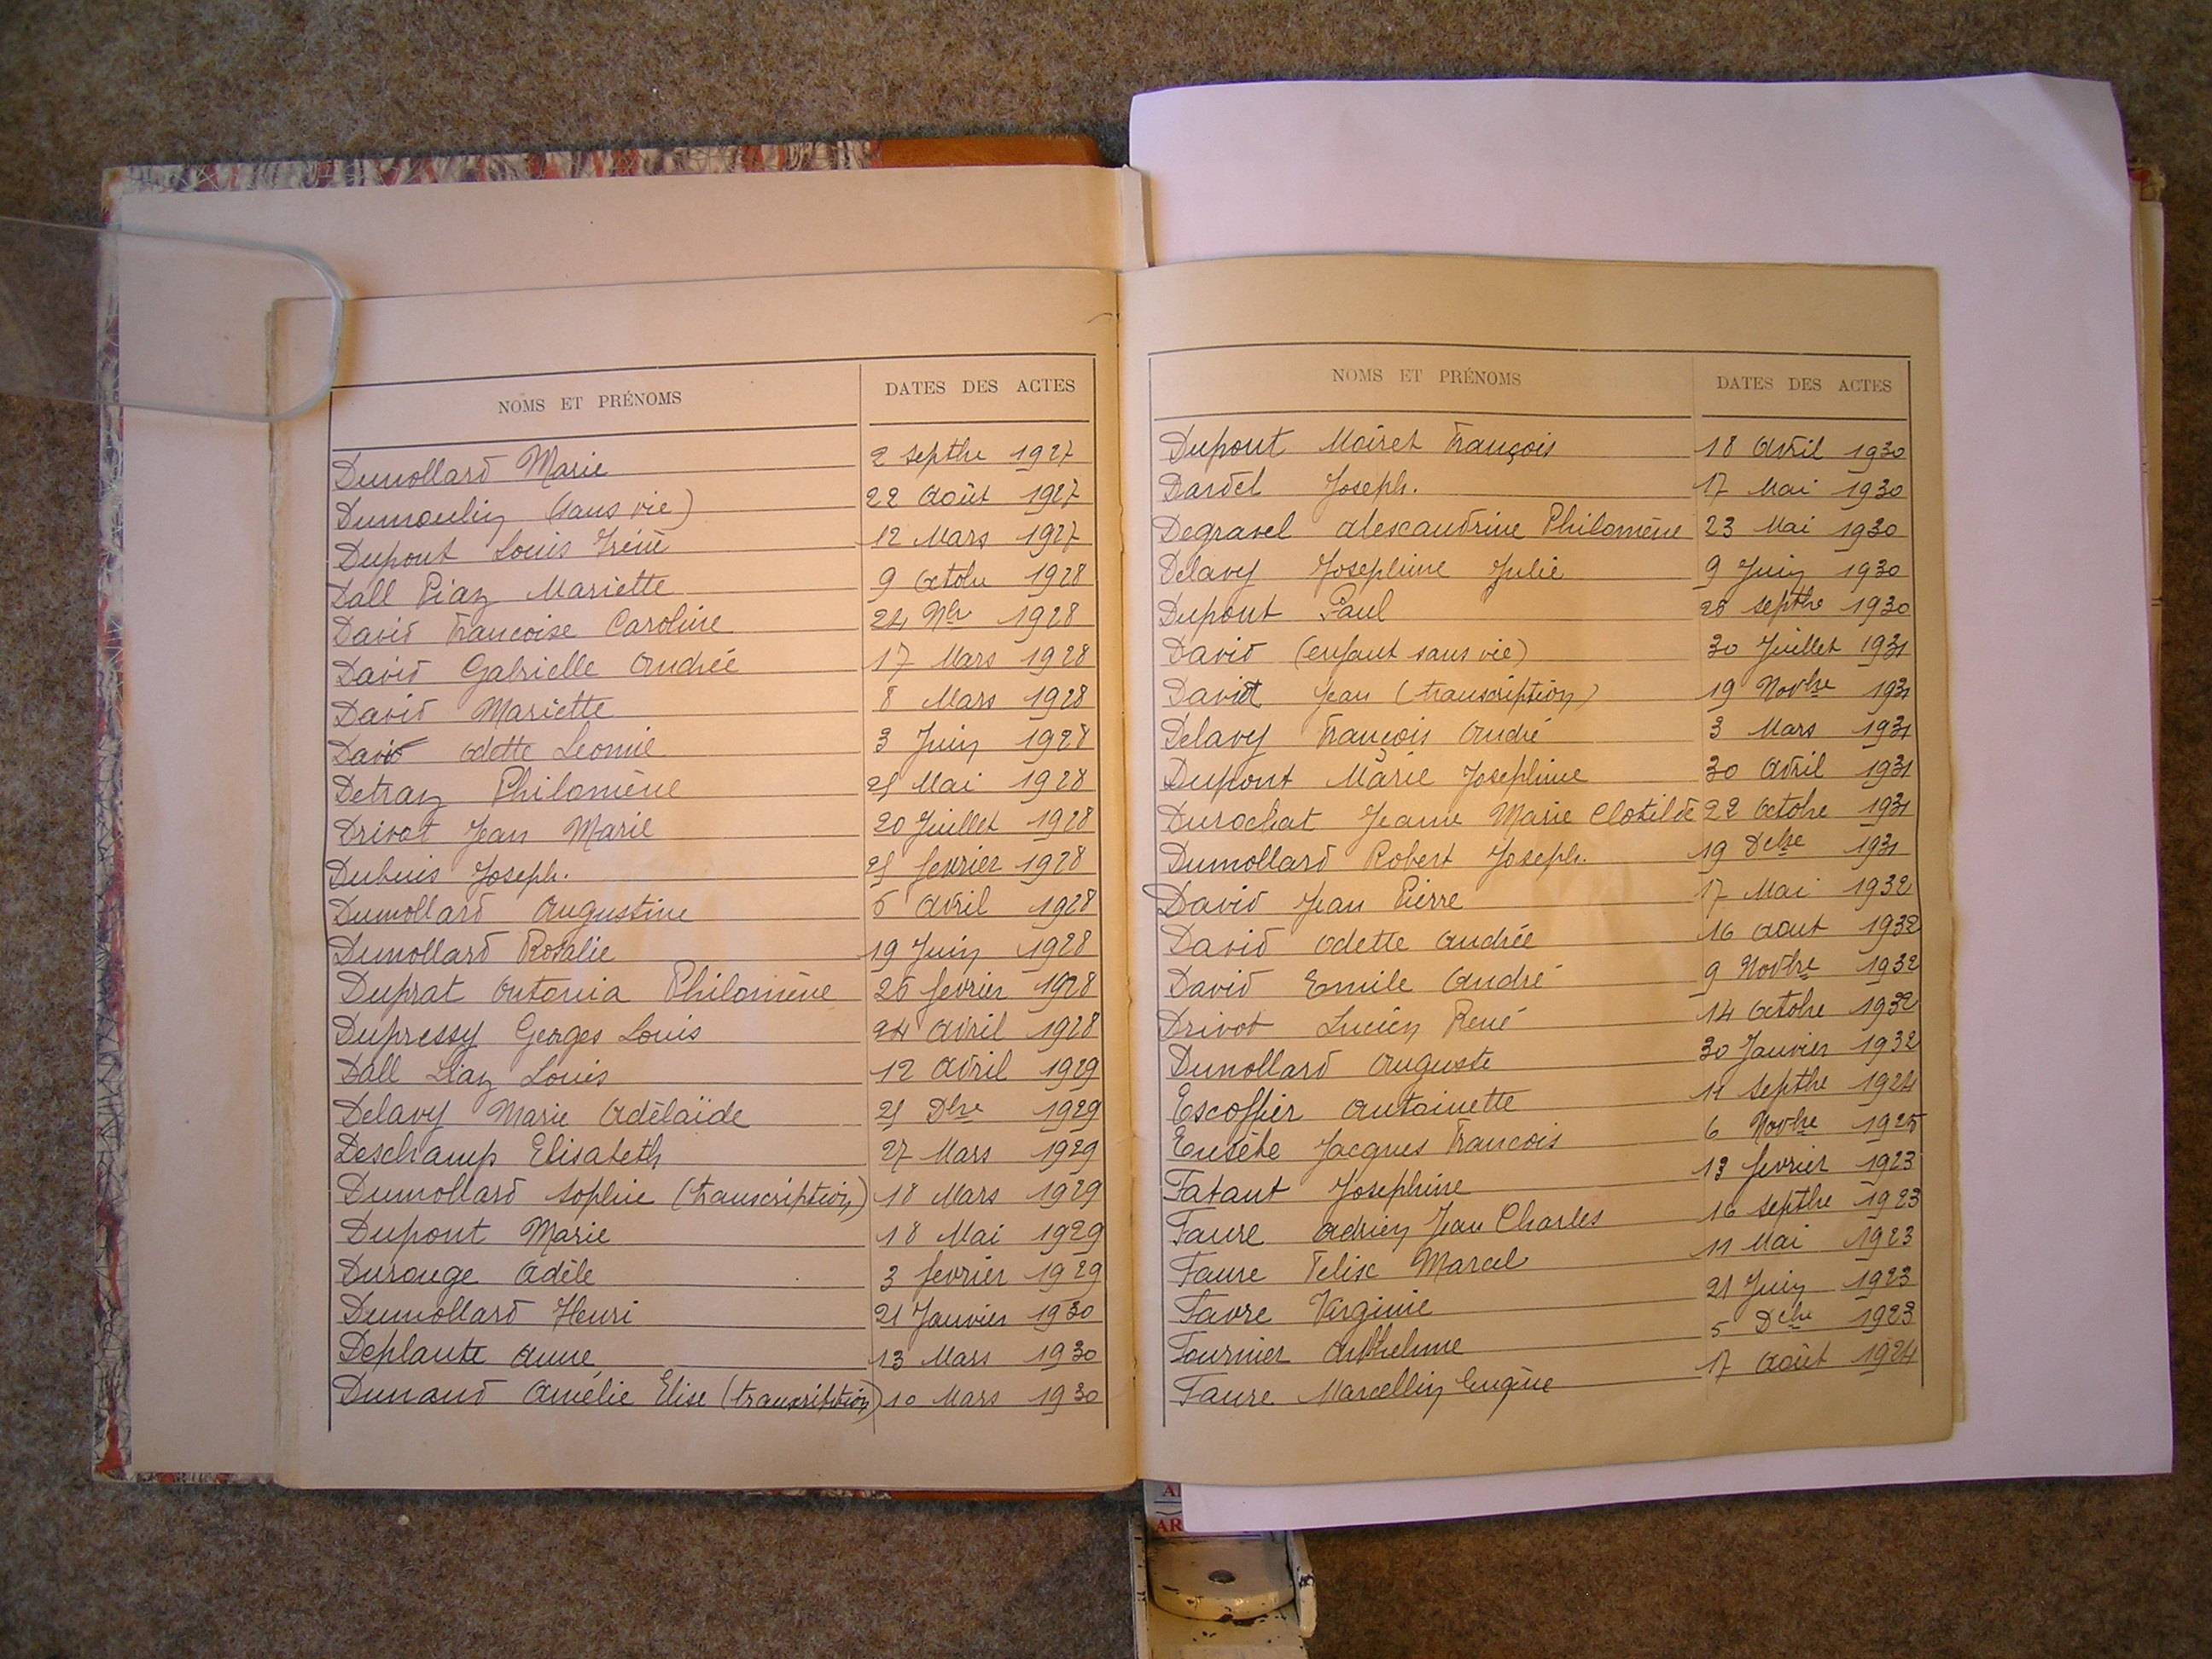 NOMS ET PRÉNOMS DATES DES ACTES
Dumollard Marie 2 Septbre 1927
Dumoulin (sans vie) 22 Août 1927
Dupont Louis Iréné 12 Mars 1927
Dall Piaz Mariette 9 Octobre 1928
David Francoise Caroline 24 Nbre 1928
David Gabrielle Andrée 17 Mars 1928
David Mariette 8 Mars 1928
David Odette Leonie 3 Juin 1928
Detraz Philomène 21 Mai 1928
Drivot Jean Marie 20 Juillet 1928
Dubuis Joseph. 21 fevrier 1928
Dumollard Augustine Avril 1928
Dumollard Rosalie 19 Juin 1928
Duprat Antonia Philomène 26 fevrier 1928
Dupressy Georges Louis 24 Avril 1928
Dall Piaz Louis 12 Avril 1929
Delavy Marie Adélaïde 21 Dbre 1929
Deschamp Elisabeth 27 Mars 1929
Dumollard Sophie (transcription) 18 Mars 1929
Dupont Marie 18 Mai 1929
Durouge Adèle 3 fevrier 1929
Dumollard Henri 21 Janvier 1930
Deplante Anne 13 Mars 1930
Dunand Amélie Elise (transcribtion) 10 Mars 1930
NOMS ET PRÉNOMS DATES DES ACTES
Dupont Moiret François 18 Avril 1930
Dardel Joseph. 17 Mai 1930
Degravel Alexcandrine Philomène 23 Mai 1930
Delavy Josephine Julie 9 Juin 1930
Dupont Paul Septbre 1930
David (enfant sans vie) 30 Juillet 1931
David Jean (transcription) 19 Novbre 1931
Delavy François André 3 Mars 1931
Dupont Marie Josephine 30 Avril 1931
Durochat Jeanne Marie Clotilde 22 Octobre 1931
Dumollard Robert Joseph. 19 Dcbre 1931
David Jean Pierre 17 Mai 1932
David Odette Andrée 16 Aout 1932
David Emile André 9 Novbre 1932
Drivot Lucien René 14 Octobre 1932
Dumollard Auguste 30 Janvier 1932
Escoffier Antoinette 11 Septbre 1924
Eusèbe Jacques Francois 6 Novbre 1925
Fatant Josephine 13 fevrier 1923
Faure Adrien Jean Charles 16 Septbre 1923
Faure Felix Marcel 11 Mai 1923
Favre Virginie 21 Juin 1923
Fournier Anthelme 5 Dcbre 1923
Faure Marcellin Eugène 17 Août 1924
A
AR